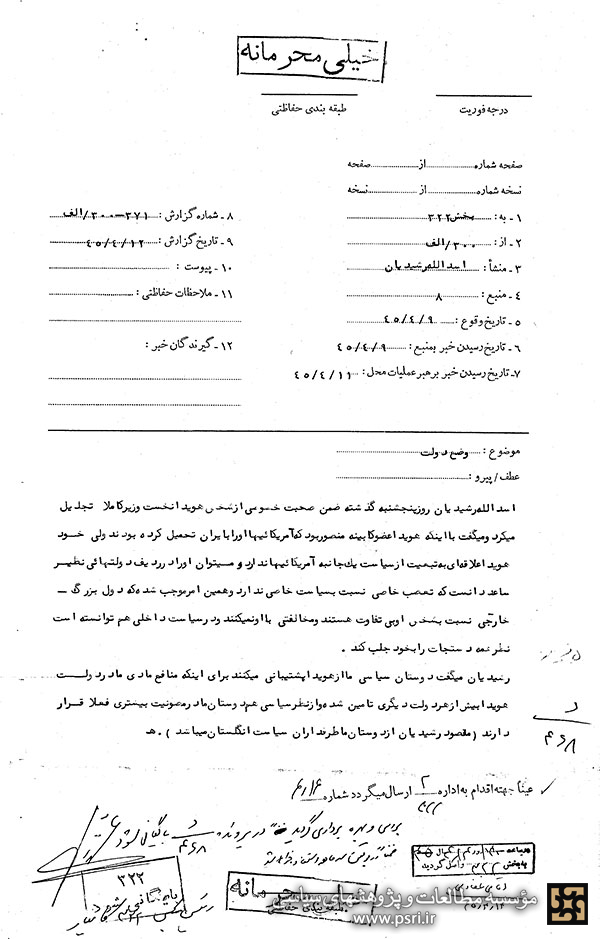 خیلی محرمانه
طبقه بندی حفاظتی
درجه فوریت
صفحه شماره ........ از ........ صفحه
نسخه شماره ........ از ........ نسخه
۱ - به : بخش ۳۲۲
۲ - از : ۳۰۰/الف
۳ - منشأ : اسداله رشیدیان
۴ - منبع : ۸
۵ - تاریخ وقوع : ۴۵/۴/۹
۶ - تاریخ رسیدن خبر بمنبع : ۴۵/۴/۹
۷ - تاریخ رسیدن خبر برهبر عملیات محل : ۴۵/۴/۱۱
۸ - شماره گزارش : ۳۷۱-۳۰۰/الف
۹ - تاریخ گزارش : ۴۵/۴/۱۲
۱۰ - پیوست :
۱۱ - ملاحظات حفاظتی :
۱۲ - گیرندگان خبر :
موضوع : وضع دولت
عطف / پیرو :
اسداله رشیدیان روز پنجشنبه گذشته ضمن صحبت خصوصی از شخص هویدا نخست وزیر کاملا تجلیل
میکرد و میگفت با اینکه هویدا عضو کابینه منصور بود که آمریکائیها او را بایران تحمیل کرده بودند ولی خود
هویدا علاقه ای به تبعیت از سیاست یک جانبه آمریکائیها ندارد و میتوان او را در ردیف دولتهائی نظیر
ساعد دانست که تعصب خاصی نسبت بسیاست خاصی ندارد و همین امر موجب شده که دول بزرگ -
خارجی نسبت بشخص او بی تفاوت هستند و مخالفتی با او نمیکنند و در سیاست داخلی هم توانسته است
نظر همه دستجات را بخود جلب کند .
رشیدیان میگفت دوستان سیاسی ما از هویدا پشتیبانی میکنند برای اینکه منافع مادی ما در دولت
هویدا بیش از هر دولت دیگری تامین شده و از نظر سیاسی هم دوستان ما در مصونیت بیشتری فعلا قرار
دارند ( مقصود رشیدیان از دوستان ما طرفداران سیاست انگلستان میباشد ) . هـ
د
۴۶۸
عیناً جهت اقدام به اداره ۲ ارسال میگردد شماره
۳۲۲
بررسی و بهره برداری گردید در پرونده د ۴۶۸ بایگانی شود
۳۲۲
خیلی محرمانه
طبقه بندی حفاظتی
مؤسسه مطالعات و پژوهشهای سیاسی
www.psri.ir